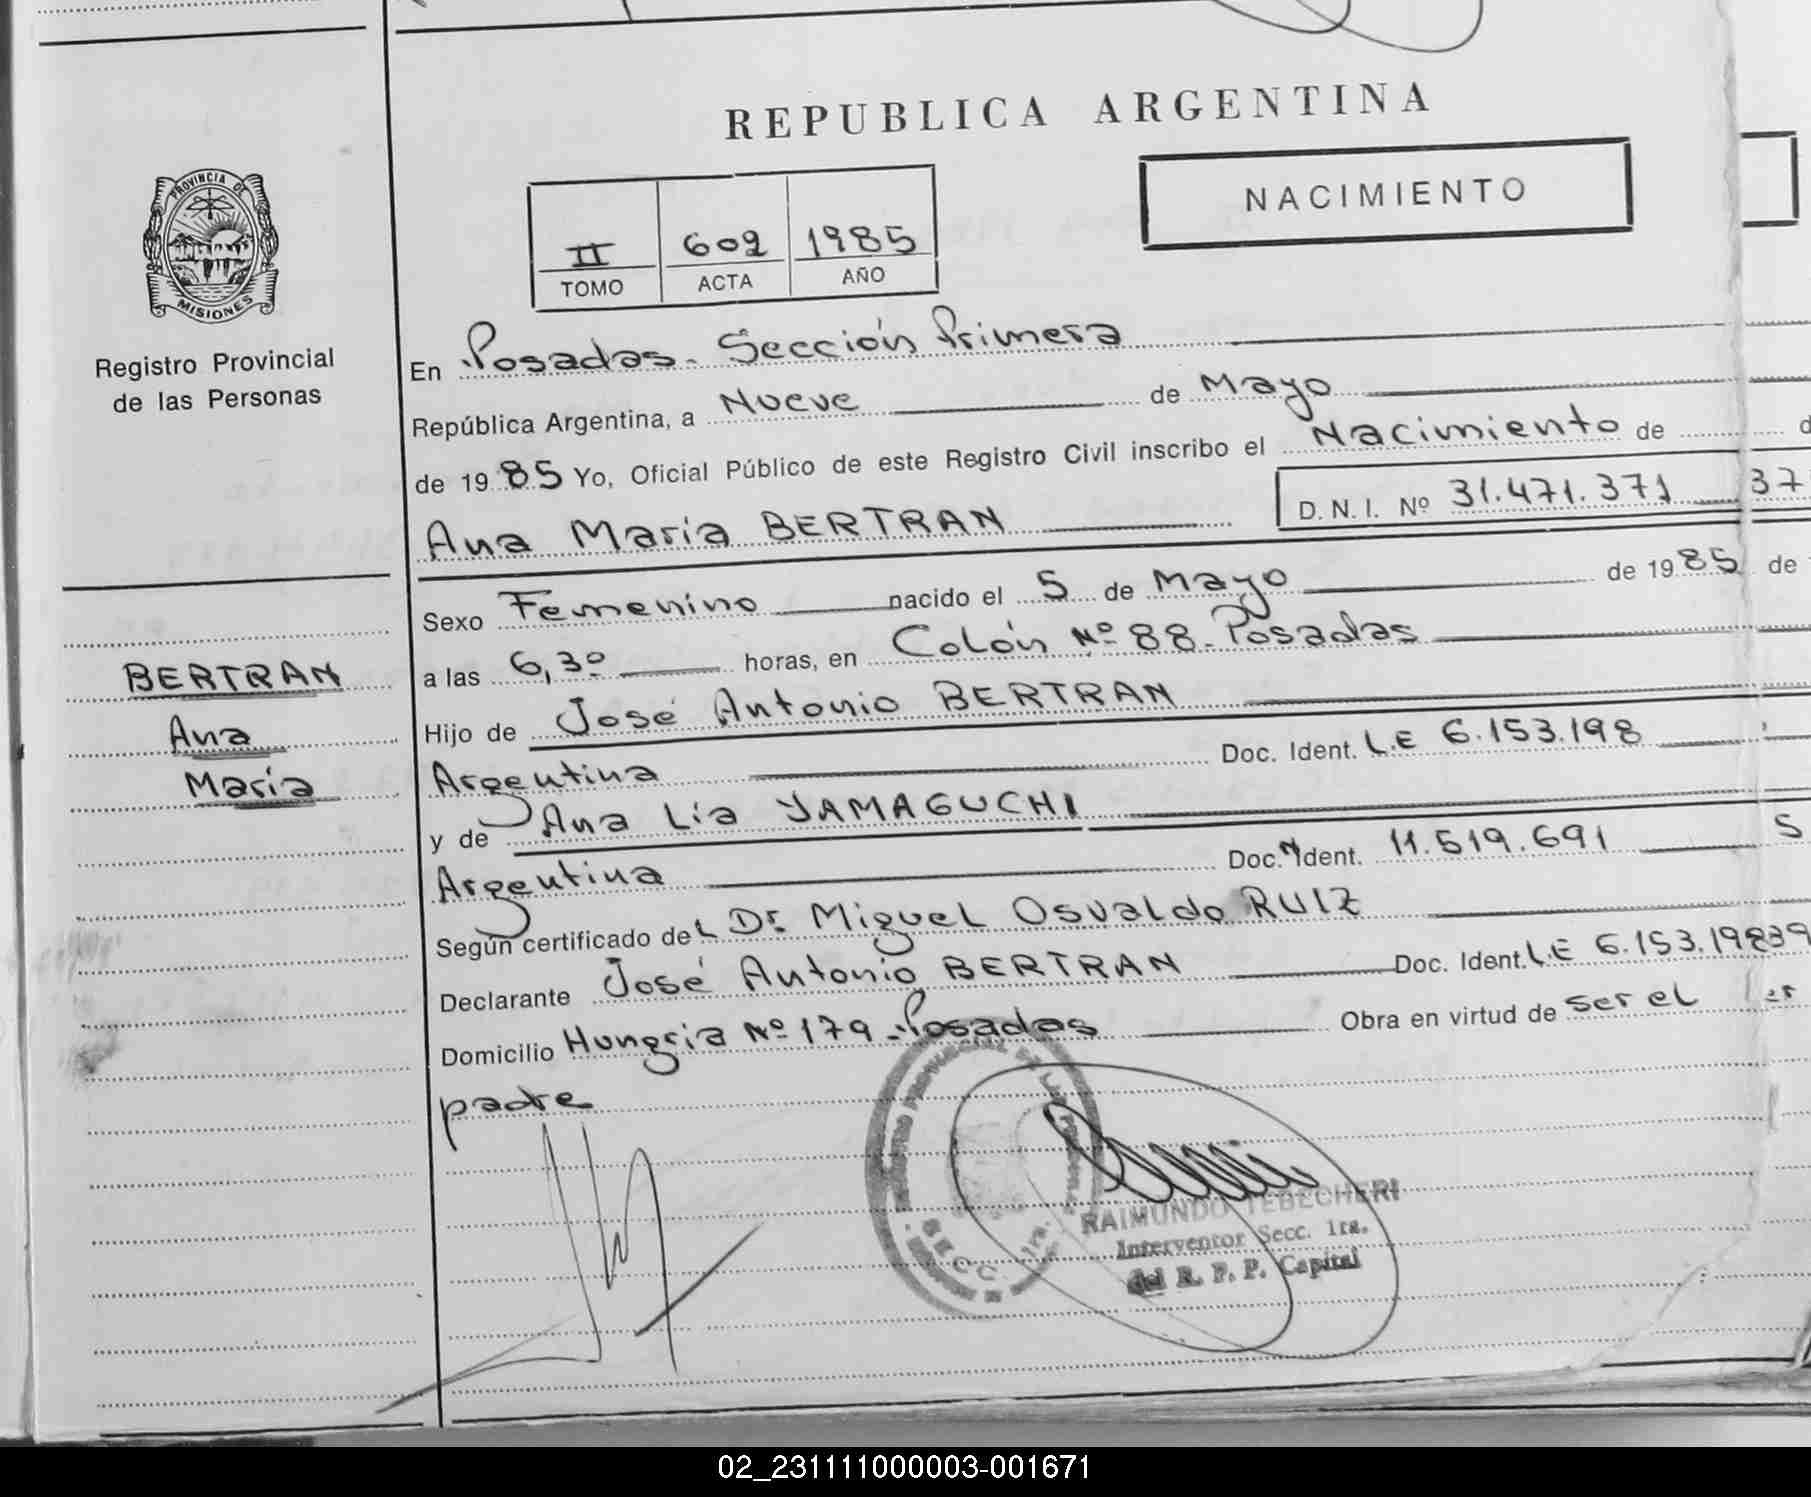 REPUBLICA ARGENTINA
NACIMIENTO
II 602 1985
TOMO ACTA AÑO
PROVINCIA DE
MISIONES
Registro Provincial
de las Personas
BERTRAN
Ana
María
En Posadas - Sección Primera
República Argentina, a Nueve de Mayo
de 1985 Yo, Oficial Público de este Registro Civil inscribo el Nacimiento de
Ana María BERTRAN D. N. I. Nº 31.471.371 37
Sexo Femenino nacido el 5 de Mayo de 1985 de
a las 6,30 horas, en Colón Nº 88 - Posadas
Hijo de José Antonio BERTRAN
Argentina Doc. Ident. L.E 6.153.198
y de Ana Lía YAMAGUCHI
Argentina Doc. Ident. 11.519.691 5
Según certificado del Dr Miguel Osvaldo RUIZ
Declarante José Antonio BERTRAN Doc. Ident. L.E 6.153.198
Domicilio Hungría Nº 179 - Posadas Obra en virtud de ser el
padre
SECC. 1ra.
RAIMUNDO TEBECHERI
Interventor Secc. 1ra.
del R. P. P. Capital
02_231111000003-001671